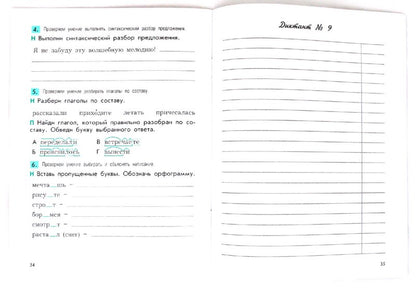 4. Проверяем умение выполнять синтаксический разбор предложения.
Н Выполни синтаксический разбор предложения.
Я не забуду эту волшебную мелодию!
5. Проверяем умение разбирать глаголы по составу.
Н Разбери глаголы по составу.
рассказали приходите летать причесалась
П Найди глагол, который правильно разобран по со-
ставу. Обведи букву выбранного ответа.
А переделали В встречаете
Б прояснилось Г вывести
6. Проверяем умение выбирать и объяснять написание
Н Вставь пропущенные буквы. Обозначь орфограмму.
мечта...шь –
рису...те –
стро...т –
бор...мся –
смотр...т –
раста...л (снег) –
34
Диктант № 9
35